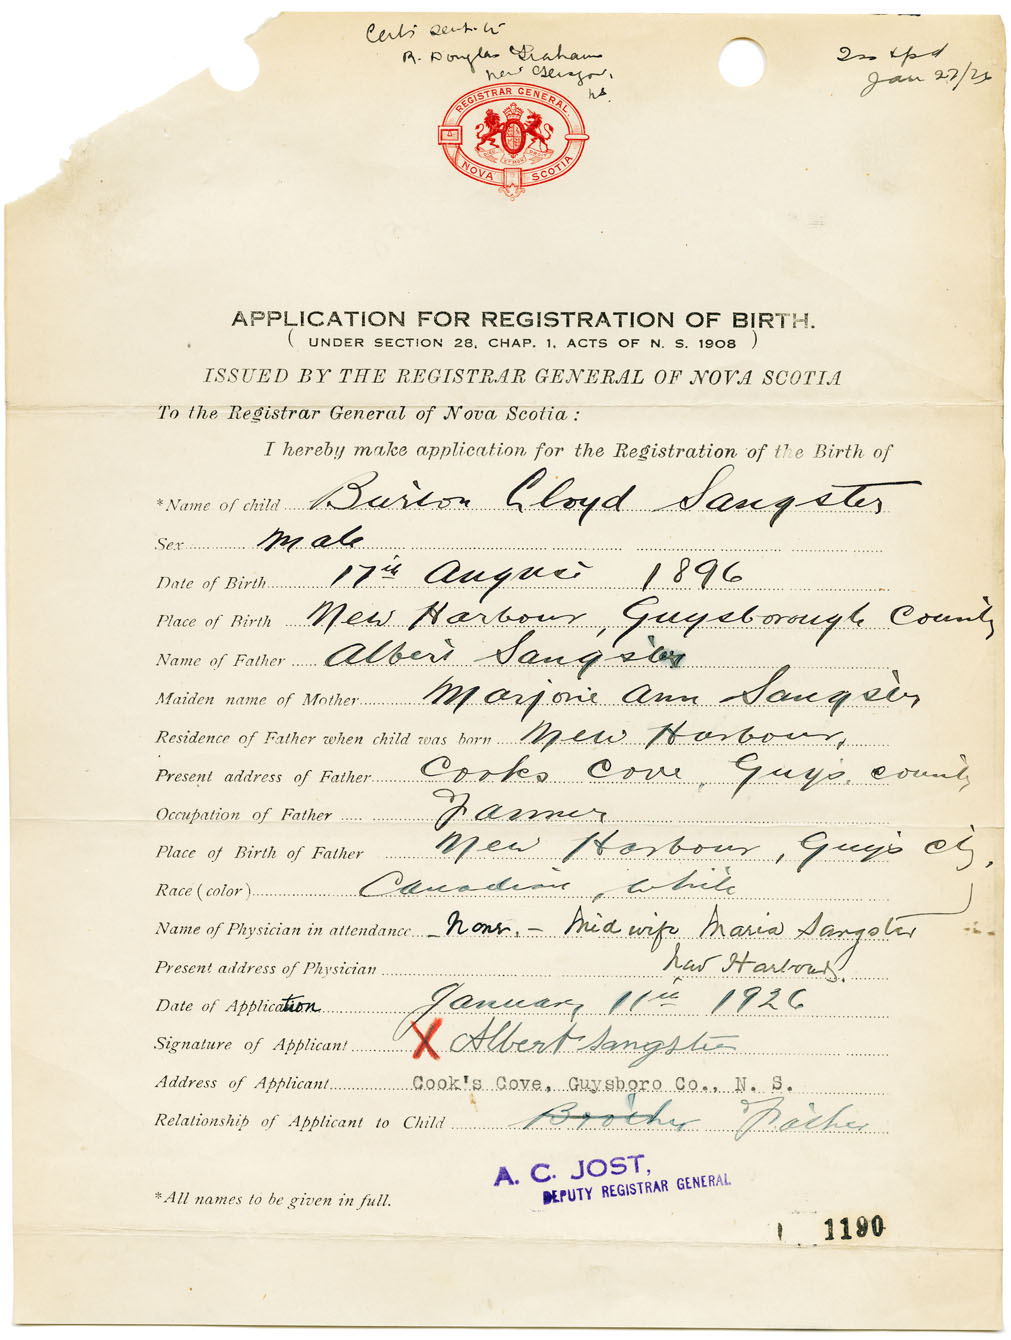 Certs sent to
R. Douglas Graham
New Glasgow,
N.S.
Jan 27/26
REGISTRAR GENERAL
NOVA SCOTIA
APPLICATION FOR REGISTRATION OF BIRTH.
( UNDER SECTION 28, CHAP. 1, ACTS OF N. S. 1908 )
ISSUED BY THE REGISTRAR GENERAL OF NOVA SCOTIA
To the Registrar General of Nova Scotia :
I hereby make application for the Registration of the Birth of
*Name of child Burton Cloyd Sangster
Sex Male
Date of Birth 17th August 1896
Place of Birth New Harbour, Guysborough County
Name of Father Albert Sangster
Maiden name of Mother Marjorie Ann Sangster
Residence of Father when child was born New Harbour,
Present address of Father Cooks Cove, Guys. County
Occupation of Father Farmer
Place of Birth of Father New Harbour, Guys Cty,
Race (color) Canadian, White
Name of Physician in attendance None, - Midwife Maria Sangster
Present address of Physician New Harbour.
Date of Application January 11th 1926
Signature of Applicant X Albert Sangster
Address of Applicant Cook's Cove, Guysboro Co., N. S.
Relationship of Applicant to Child Brother Father
A. C. JOST,
DEPUTY REGISTRAR GENERAL
*All names to be given in full.
1190